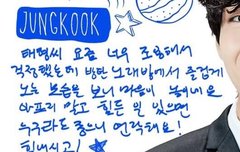 JUNGKOOK
태형씨 요즘 너무 조용해서
걱정했는데 방탄 노래방에서 즐겁게
노는 모습을 보니 마음이 놓이네요
아프지 말고 힘든 일 있으면
누구라도 좋으니 연락해요!
힘내시고!